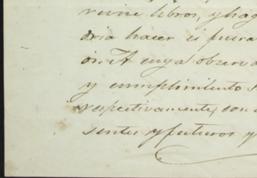 vivir libros, y hag
dria hacer si fuera
on. A cuya observ
y cumplimiento
respectivamente, con
sentes y futuros y